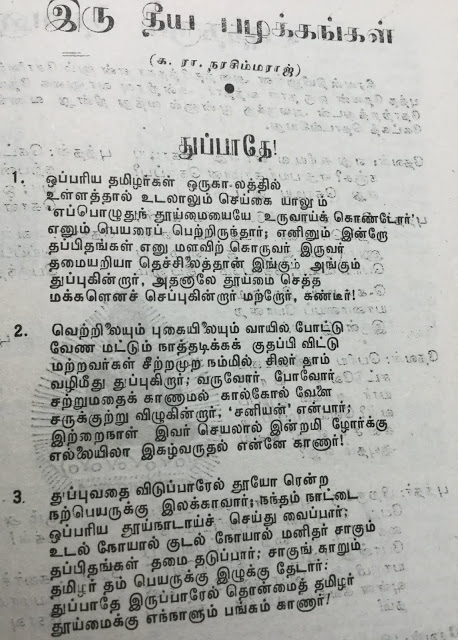 இரு தீய பழக்கங்கள்
(க. ரா. நரசிம்மராஜ்)
துப்பாதே!
1. ஒப்பரிய தமிழர்கள் ஒருகாலத்தில்
உள்ளத்தால் உடலாலும் செய்கை யாலும்
'எப்பொழுதுந் தூய்மையையே உருவாய்க் கொண்டோர்'
எனும் பெயரைப் பெற்றிருந்தார்; எனினும் இன்றோ
தப்பிதங்கள் எனு மளவிற் கொருவர் இருவர்
தமையறியா தெச்சிலைத்தான் இங்கும் அங்கும்
துப்புகின்றார், அதனாலே தூய்மை செத்த
மக்களெனச் செப்புகின்றார் மற்றோர், கண்டீர்!
2. வெற்றிலையும் புகையிலையும் வாயில் போட்டு
வேண மட்டும் நாத்தடிக்கக் குதப்பி விட்டு
மற்றவர்கள் சீற்றமுற நம்மில் சிலர் தாம்
வழிமீது துப்புகிறார்; வருவோர் போவோர்
சற்றுமதைக் காணாமல் கால்கோல் வேளை
சருக்குற்று விழுகின்றார், 'சனியன்' என்பார்;
இற்றைநாள் இவர் செயலால் இன்றமி ழோர்க்கு
எல்லையிலா இகழ்வருதல் என்னே காணார்!
3. துப்புவதை விடுப்பாரேல் தூயோ ரென்ற
நற்பெயருக்கு இலக்காவார்; நந்தம் நாட்டை
ஒப்பரிய தூய்நாடாய்ச் செய்து வைப்பார்;
உடல் நோயால் குடல் நோயால் மனிதர் சாகும்
தப்பிதங்கள் தமை தடுப்பார்; சாகுங் காறும்
தமிழர் தம் பெயருக்கு இழுக்கு தேடார்:
துப்பாதே இருப்பாரேல் தொன்மைத் தமிழர்
தூய்மைக்கு எந்நாளும் பங்கம் காணார்!